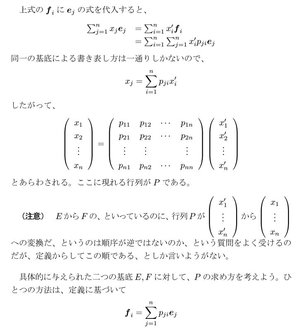 上式の f_i に e_j の式を代入すると、
∑_{j=1}^n x_j e_j = ∑_{i=1}^n x'_i f_i
= ∑_{i=1}^n ∑_{j=1}^n x'_i p_{ji} e_j
同一の基底による書き表し方は一通りしかないので、
x_j = ∑_{i=1}^n p_{ji} x'_i
したがって、
( x_1 ) ( p_11 p_12 ⋯ p_1n ) ( x'_1 )
( x_2 ) = ( p_21 p_22 ⋯ p_2n ) ( x'_2 )
( ⋮ ) ( ⋮ ⋮ ⋮ ) ( ⋮ )
( x_n ) ( p_n1 p_n2 ⋯ p_nn ) ( x'_n )
とあらわされる。ここに現れる行列が P である。
(注意) E から F の、といっているのに、行列 P が ( x'_1 ⋮ x'_n ) から ( x_1 ⋮ x_n )
への変換だ、というのは順序が逆ではないのか、という質問をよく受けるの
だが、定義からしてこの順である、としか言いようがない。
具体的に与えられた二つの基底 E, F に対して、P の求め方を考えよう。ひ
とつの方法は、定義に基づいて
f_i = ∑_{j=1}^n p_{ji} e_j